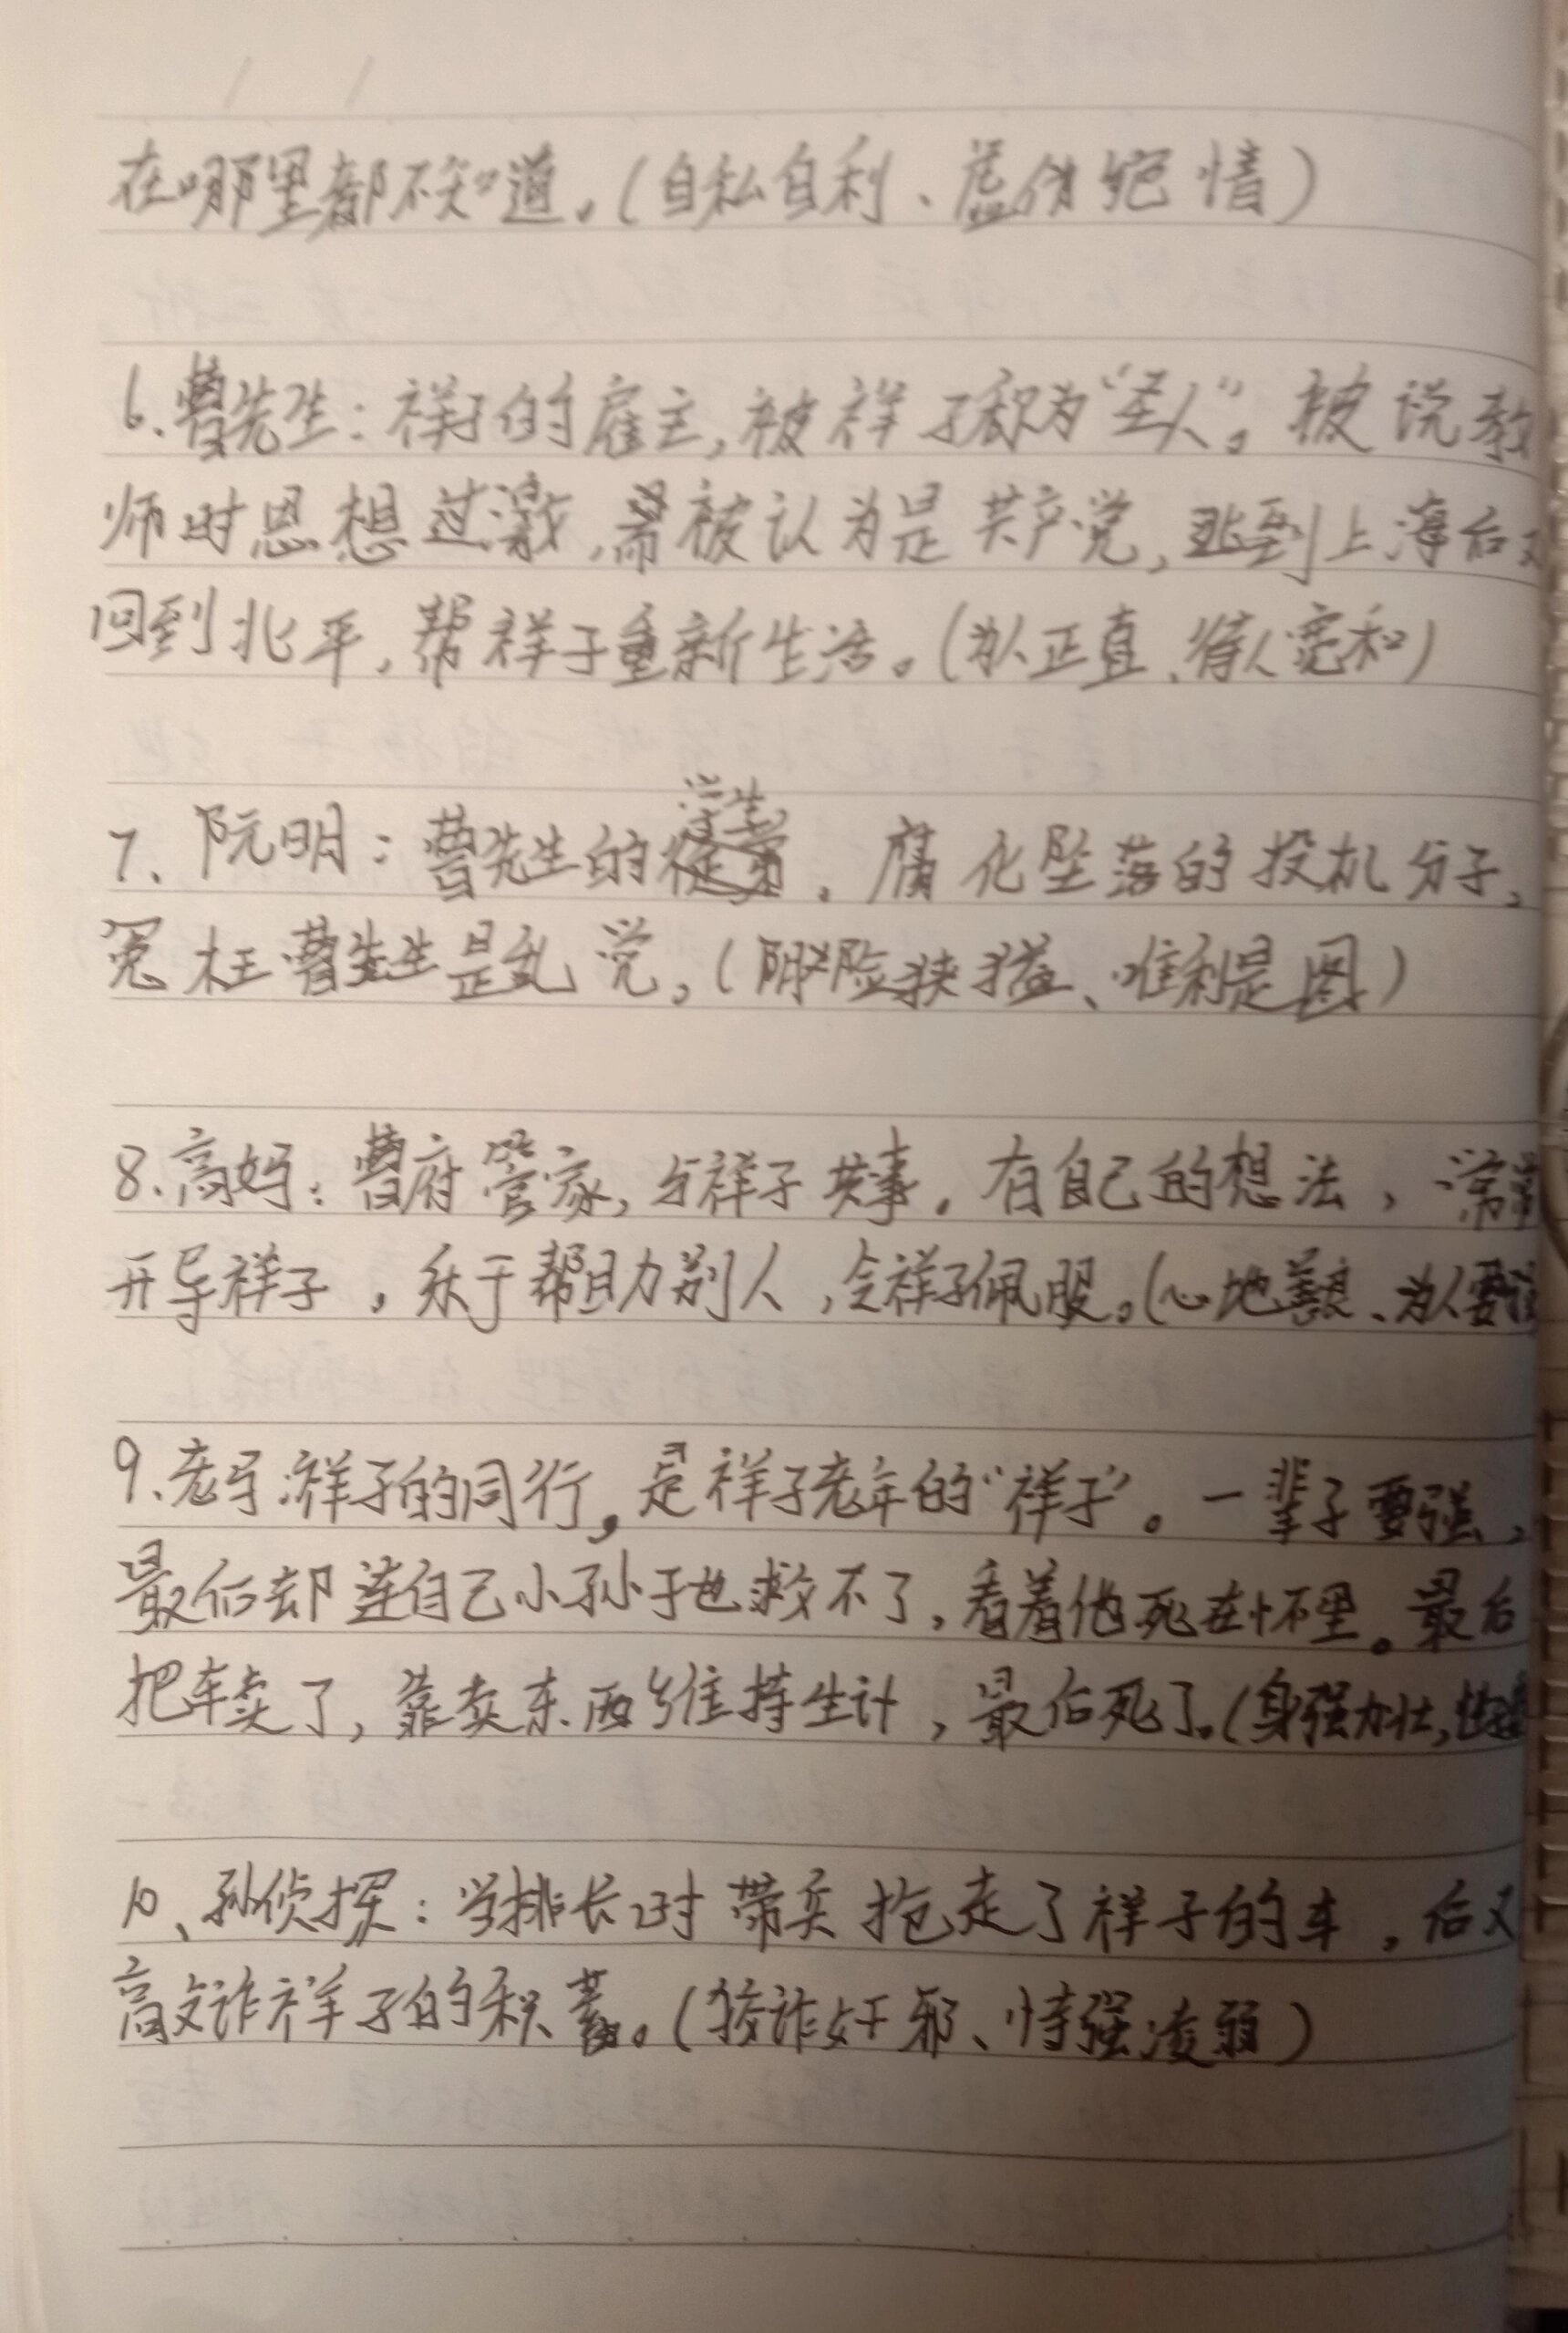 在哪里都不知道。(自私自利、虚伪绝情)
6.曹先生:祥子的雇主,被祥子称为“圣人”。被说教
师时思想过激,被认为是共产党,逃到上海后又
回到北平,帮祥子重新生活。(为人正直、待人宽和)
7、阮明:曹先生的学生。腐化坠落的投机分子,
冤枉曹先生是乱党。(阴险狭猛、唯利是图)
8.高妈:曹府管家,与祥子共事。有自己的想法,常常
开导祥子。乐于帮助别人,令祥子佩服。(心地善良、为人要强
9.老马:祥子的同行,是祥子老年的“祥子”。一辈子要强,
最后却连自己小孙于也救不了,看着他死在怀里。最后
把车卖了,靠卖东西维持生计,最后死了。(身强力壮,
10、孙侦探:当排长时带兵抢走了祥子的车,后又
高敲诈祥子的积蓄。(狡诈奸邪、恃强凌弱)